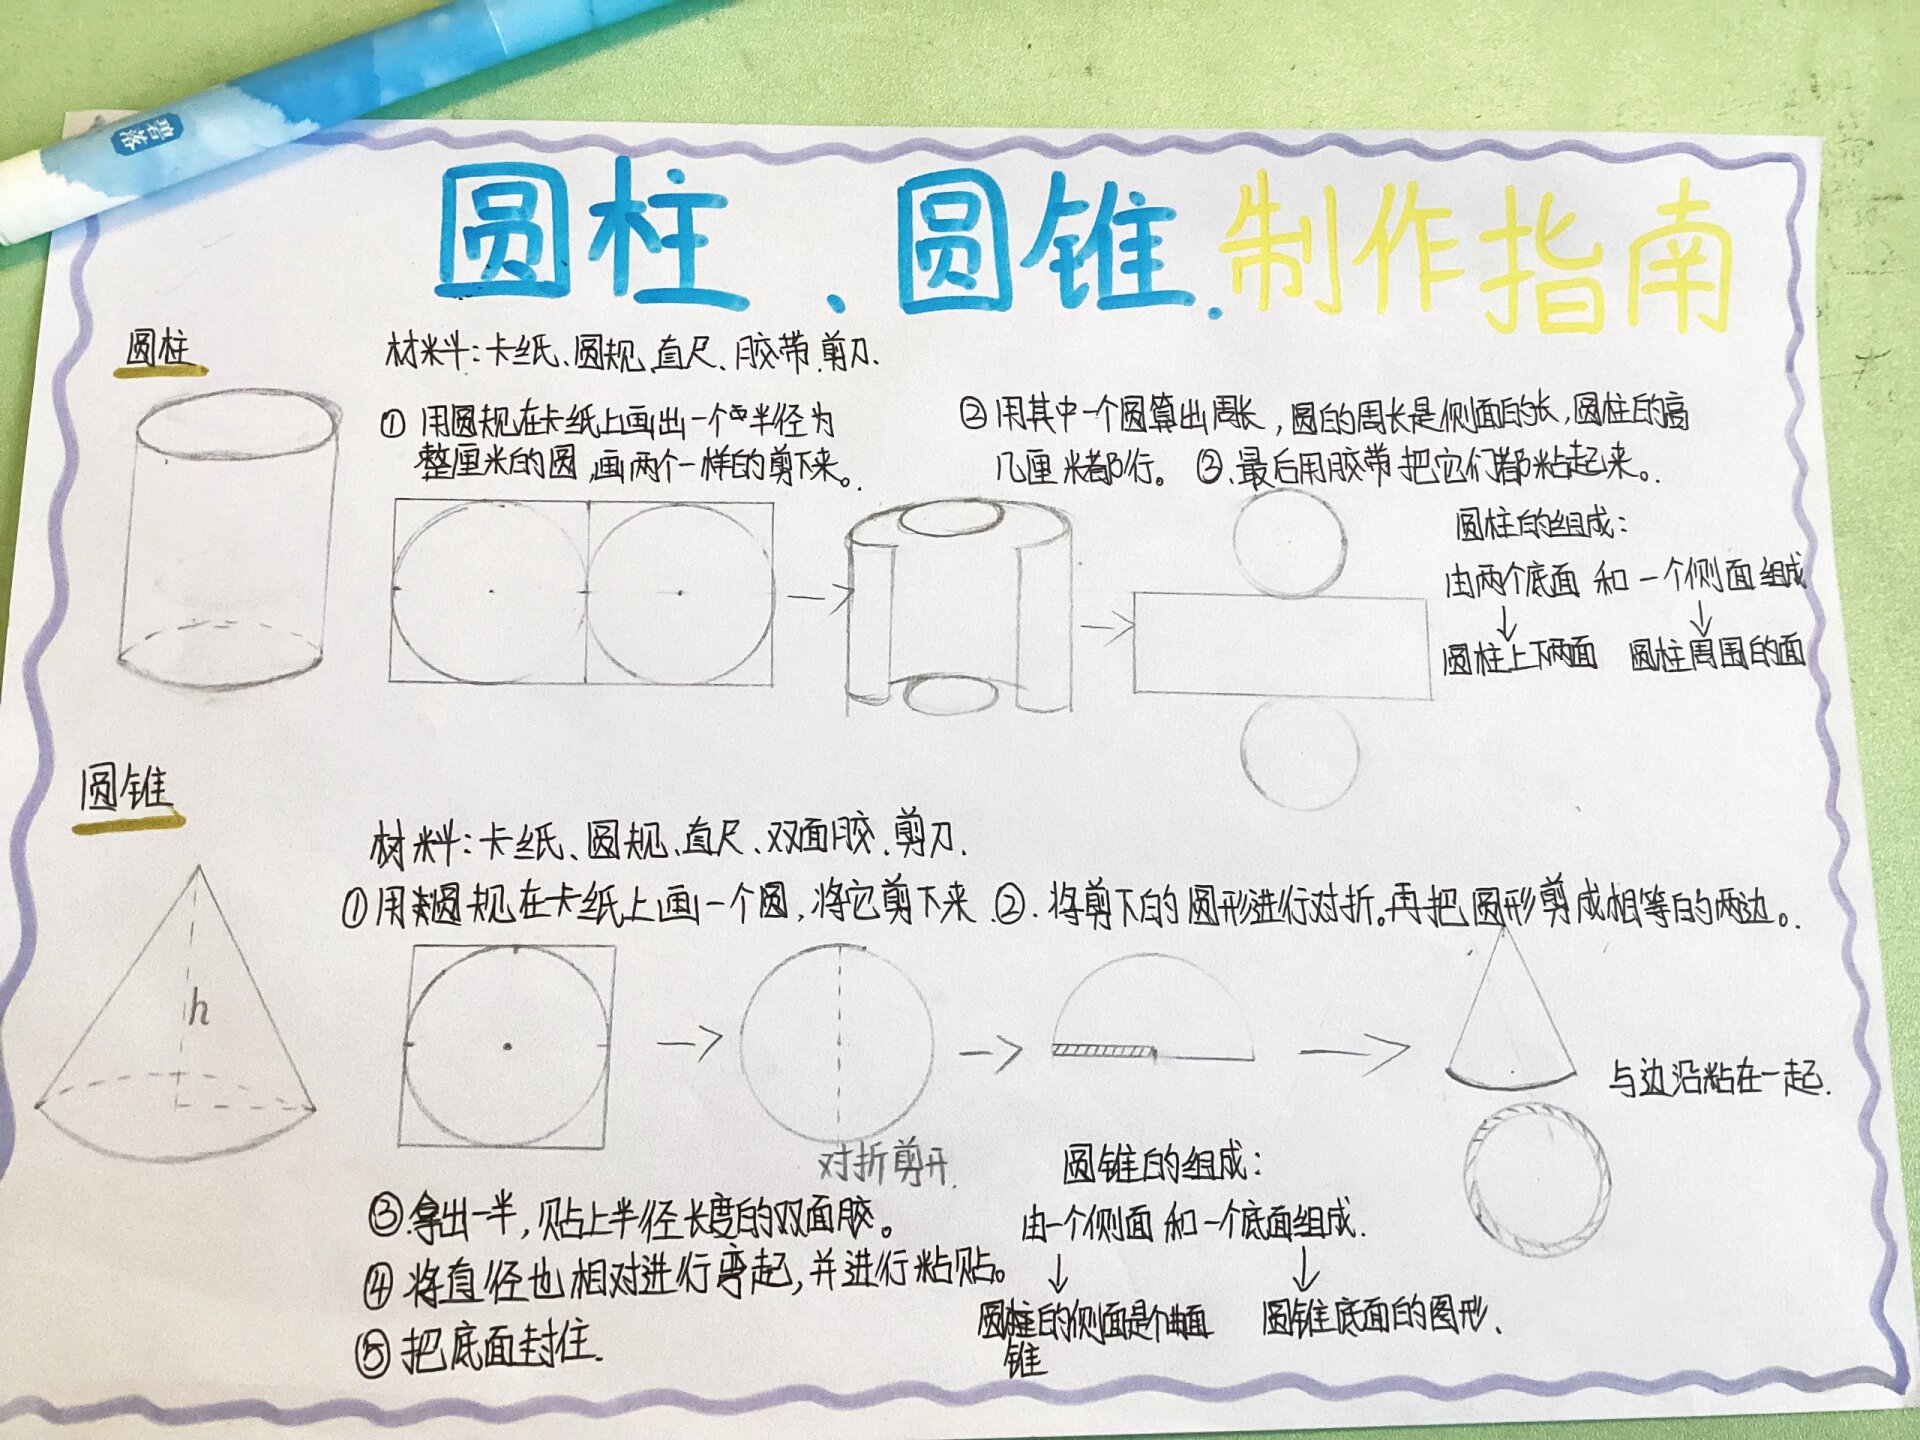 碧落
圆柱、圆锥.制作指南
圆柱
材料:卡纸、圆规、直尺、胶带.剪刀.
① 用圆规在卡纸上画出一个半径为
整厘米的圆,画两个一样的剪下来。
② 用其中一个圆算出周长,圆的周长是侧面的长,圆柱的高
几厘米都行。 ③.最后用胶带把它们都粘起来。
圆柱的组成:
由两个底面 和 一个侧面组成
↓ ↓
圆柱上下两面 圆柱周围的面
圆锥
h
材料:卡纸、圆规、直尺、双面胶.剪刀.
①用圆规在卡纸上画一个圆,将它剪下来.②.将剪下的圆形进行对折。再把圆形剪成相等的两边。
与边沿粘在一起.
对折剪开.
③.拿出一半,贴上半径长度的双面胶。
④ 将直径也相对进行弯起,并进行粘贴。
⑤ 把底面封住.
圆锥的组成:
由一个侧面 和 一个底面组成.
↓ ↓
圆柱的侧面是个曲面 圆锥底面的图形、
锥